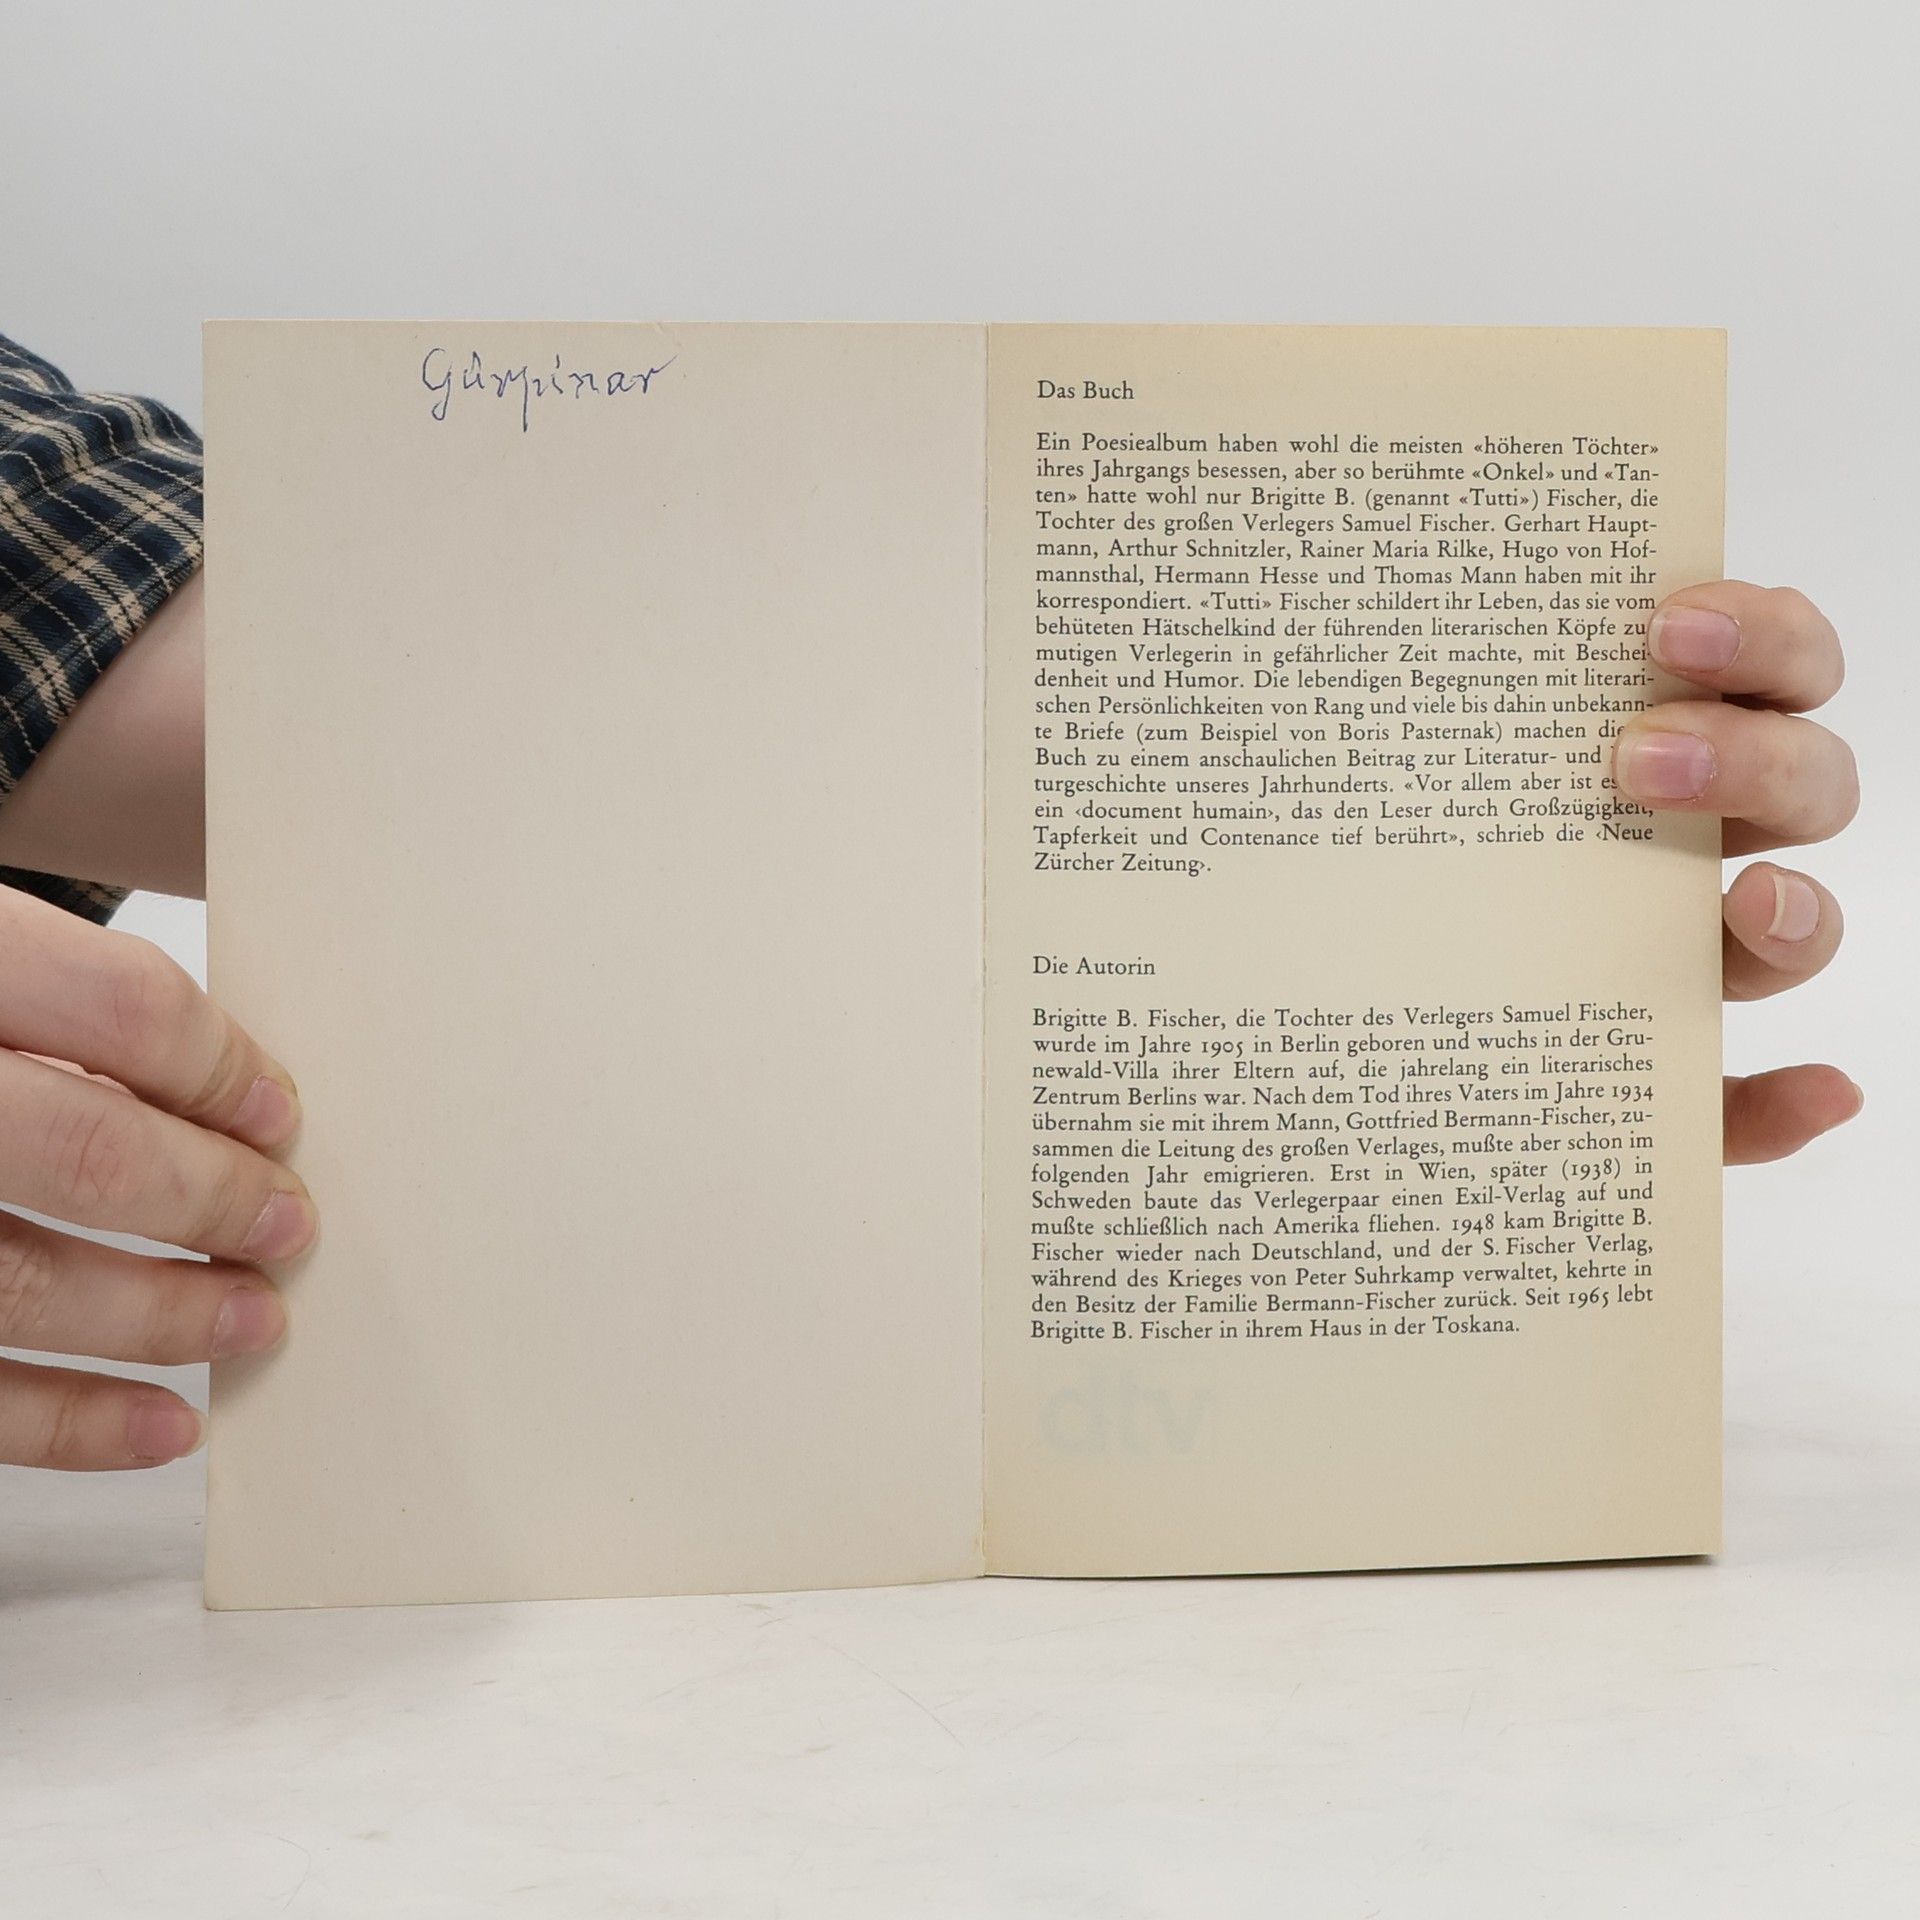 Gürpinar
Das Buch
Ein Poesiealbum haben wohl die meisten «höheren Töchter»
ihres Jahrgangs besessen, aber so berühmte «Onkel» und «Tan-
ten» hatte wohl nur Brigitte B. (genannt «Tutti») Fischer, die
Tochter des großen Verlegers Samuel Fischer. Gerhart Haupt-
mann, Arthur Schnitzler, Rainer Maria Rilke, Hugo von Hof-
mannsthal, Hermann Hesse und Thomas Mann haben mit ihr
korrespondiert. «Tutti» Fischer schildert ihr Leben, das sie vom
behüteten Hätschelkind der führenden literarischen Köpfe zu
mutigen Verlegerin in gefährlicher Zeit machte, mit Beschei-
denheit und Humor. Die lebendigen Begegnungen mit literari-
schen Persönlichkeiten von Rang und viele bis dahin unbekann-
te Briefe (zum Beispiel von Boris Pasternak) machen
Buch zu einem anschaulichen Beitrag zur Literatur- und
turgeschichte unseres Jahrhunderts. «Vor allem aber ist es
ein ‹document humain›, das den Leser durch Großzügigkeit,
Tapferkeit und Contenance tief berührt», schrieb die ‹Neue
Zürcher Zeitung›.
Die Autorin
Brigitte B. Fischer, die Tochter des Verlegers Samuel Fischer,
wurde im Jahre 1905 in Berlin geboren und wuchs in der Gru-
newald-Villa ihrer Eltern auf, die jahrelang ein literarisches
Zentrum Berlins war. Nach dem Tod ihres Vaters im Jahre 1934
übernahm sie mit ihrem Mann, Gottfried Bermann-Fischer, zu-
sammen die Leitung des großen Verlages, mußte aber schon im
folgenden Jahr emigrieren. Erst in Wien, später (1938) in
Schweden baute das Verlegerpaar einen Exil-Verlag auf und
mußte schließlich nach Amerika fliehen. 1948 kam Brigitte B.
Fischer wieder nach Deutschland, und der S. Fischer Verlag,
während des Krieges von Peter Suhrkamp verwaltet, kehrte in
den Besitz der Familie Bermann-Fischer zurück. Seit 1965 lebt
Brigitte B. Fischer in ihrem Haus in der Toskana.